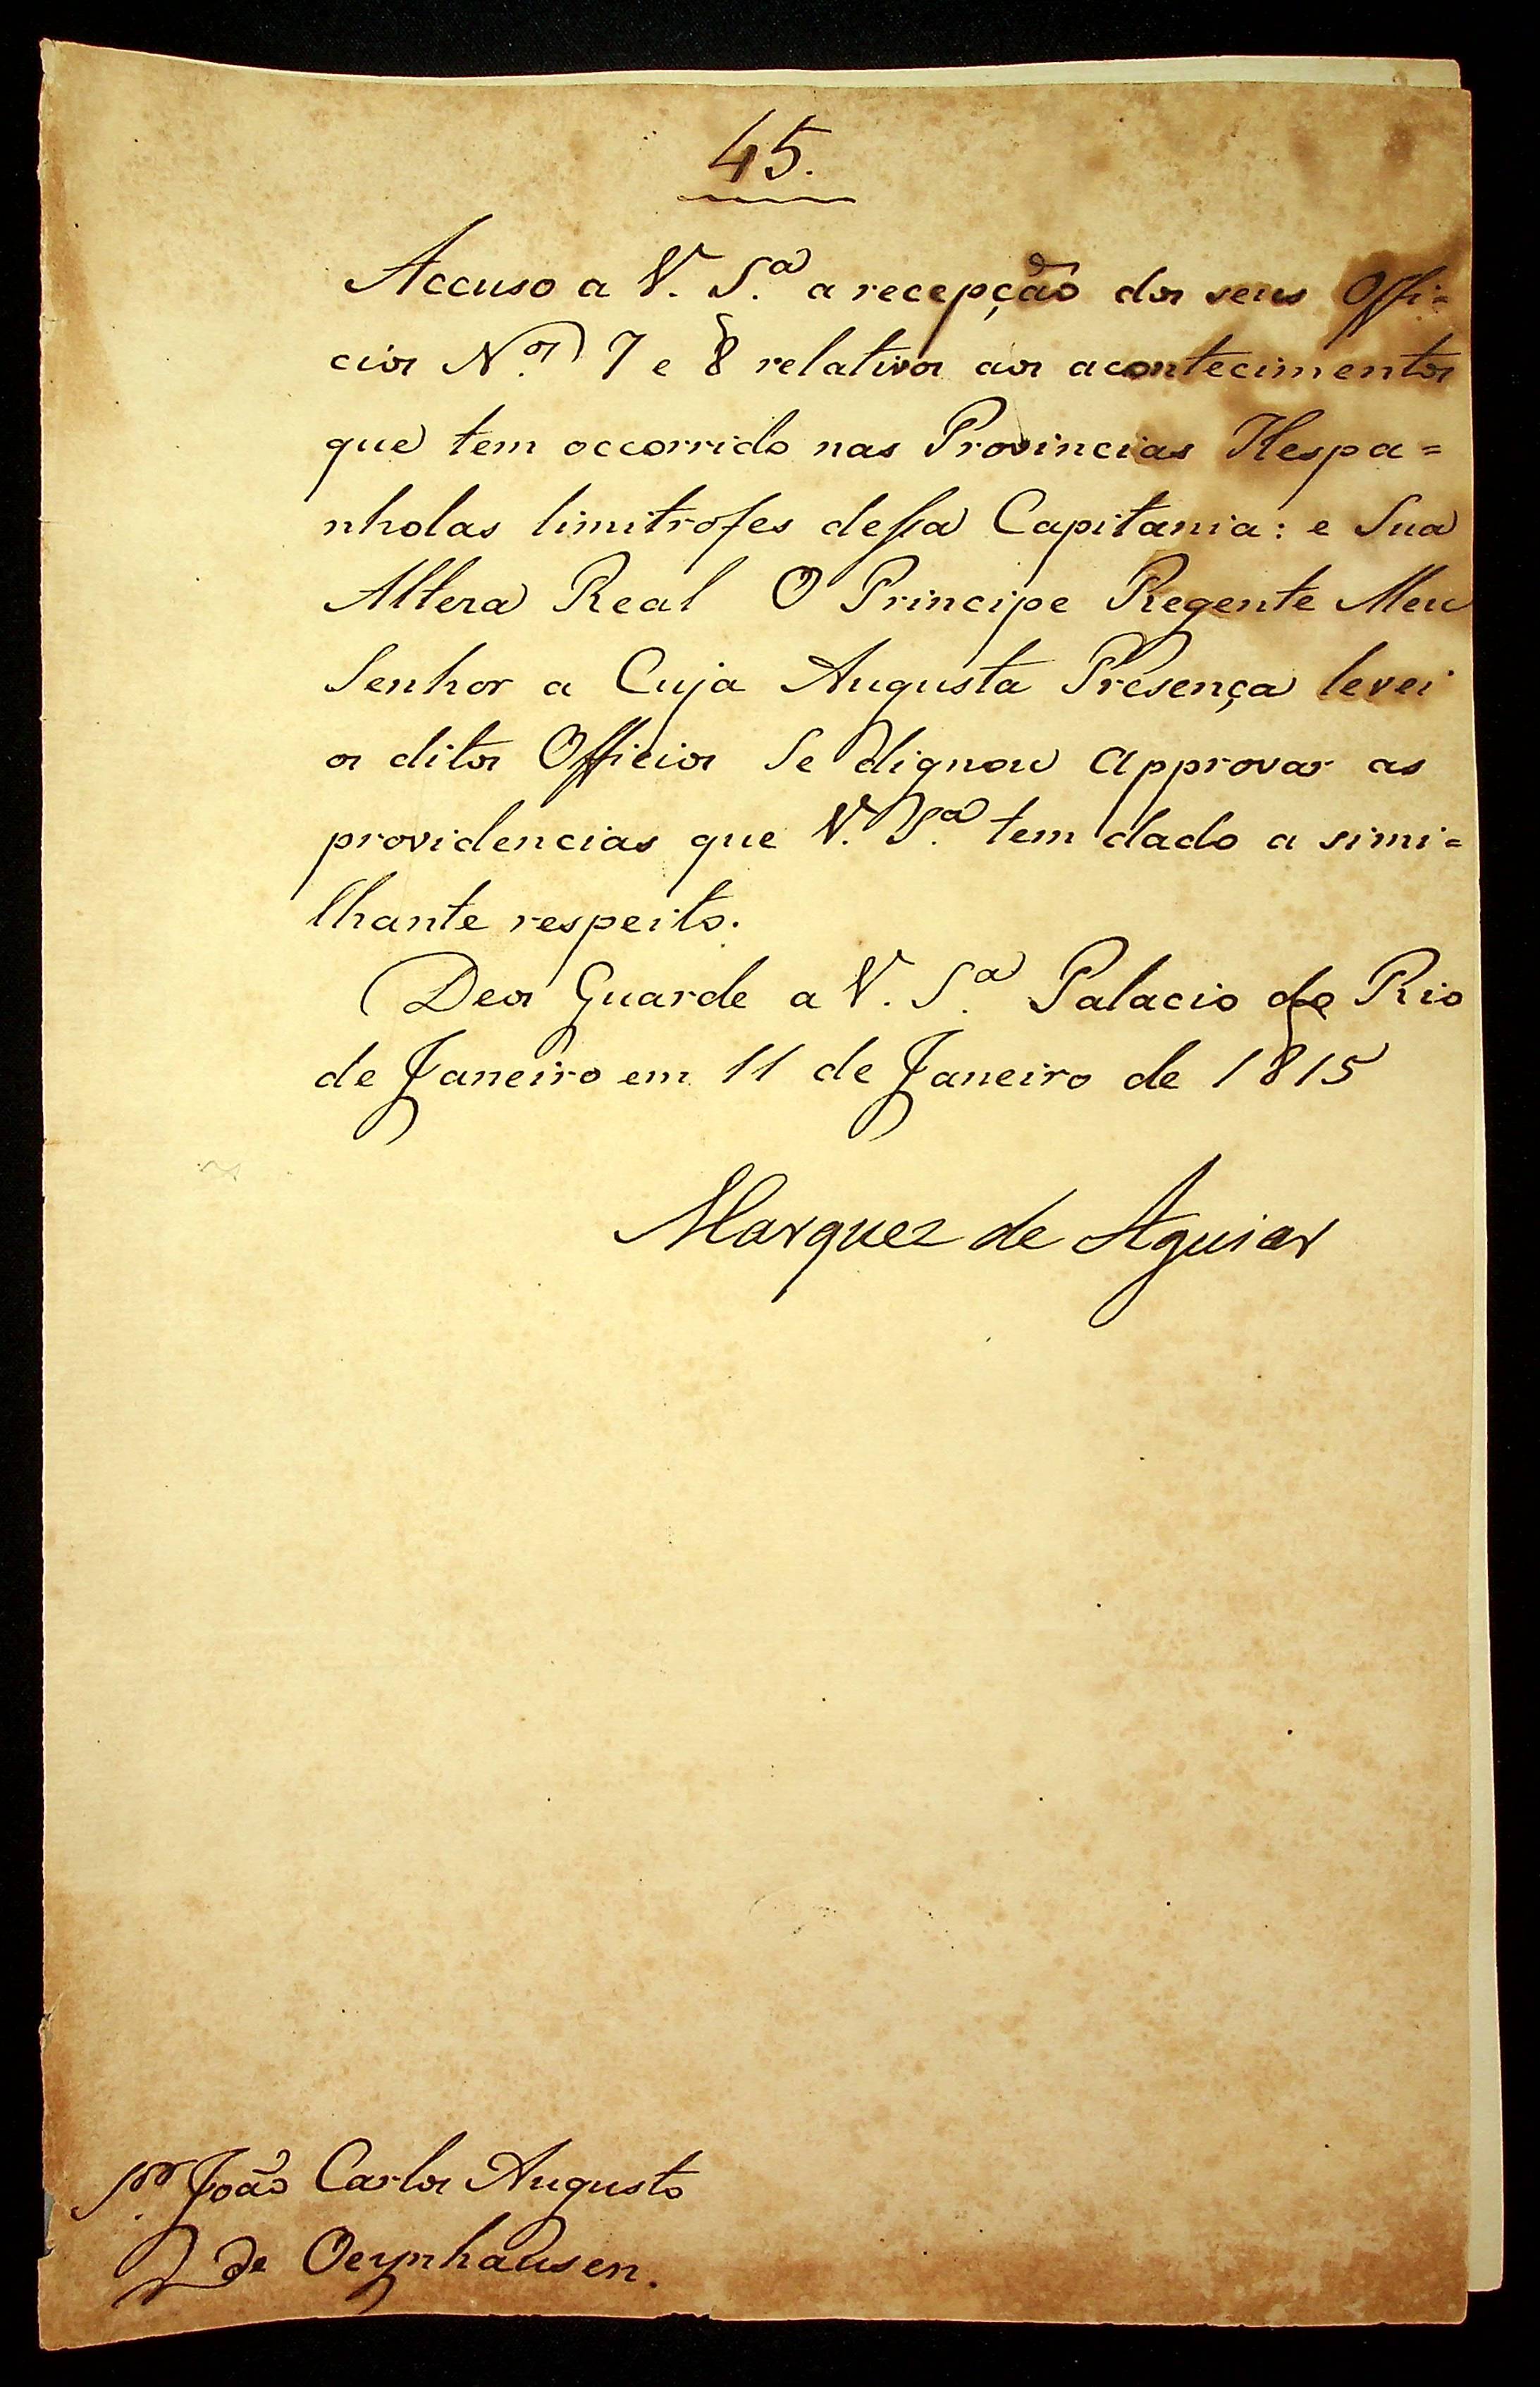 45.
Accuso a V. S.ª a recepção dos seus Offi=
cios N.os 7 e 8 relativos aos acontecimentos
que tem occorrido nas Provincias Hespa=
nholas limitrofes dessa Capitania: e Sua
Alteza Real O Principe Regente Meu
Senhor a Cuja Augusta Presença levei
os ditos Officios Se dignou Approvar as
providencias que V. S.ª tem dado a simi=
lhante respeito.
Deos Guarde a V. S.ª Palacio do Rio
de Janeiro em 11 de Janeiro de 1815
Marquez de Aguiar
S.or João Carlos Augusto
de Oeynhausen.